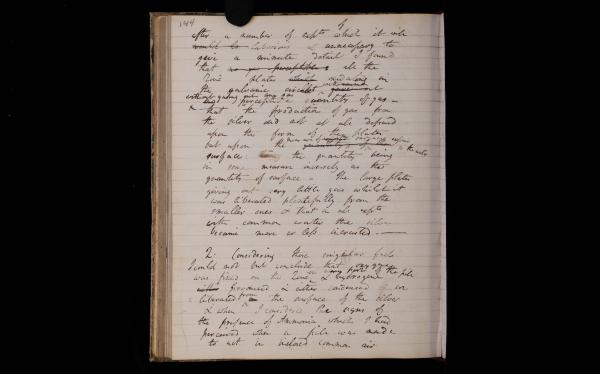 144
of
after a number of expts which it will
would be laborious & unnecessary to
give a minute detail I found
that no gas perceptible all the
Zinc plates which oxidating in
the galvanic circuit gave out
without giving out any gas
perceptible quantity of gas —
that the production of gas from
the silver did not at all depend
upon the form of the plates
but upon the
surface: the quantity being
in some measure inversely as the
quantity of surface — The large plates
giving out very little gas whilst it
was liberated plentifully from the
smaller ones & that in all expts
with common water the silver
became more or less incrusted. —
2. Considering these singular facts
I could not but conclude that oxygene
was fixed on the Zinc in every part of the pile
& hydrogene
produced in either condensed or
liberated from the surface of the silver
& when I considered the signs of
the presence of Ammonia which I had
perceived when a pile was made
to act in inclosed common air